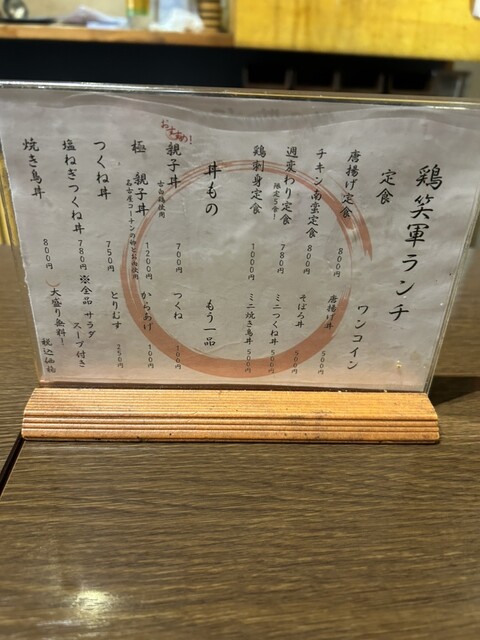 鶏笑軍ランチ
定食
唐揚げ定食 800円
チキン南蛮定食 800円
週変わり定食 780円
限定5食!
鶏刺身定食 1000円
ワンコイン
唐揚げ丼 500円
そぼろ丼 500円
ミニつくね丼 500円
ミニ焼き鳥丼 500円
丼もの
おすすめ!
親子丼 700円
古白鶏使用
極 親子丼 1200円
名古屋コーチンの卵とお肉使用
つくね丼 750円
塩ねぎつくね丼 780円
焼き鳥丼 800円
もう一品
つくね 100円
からあげ 100円
とりむす 250円
※全品 サラダ
スープ付き
大盛り無料!
税込価格